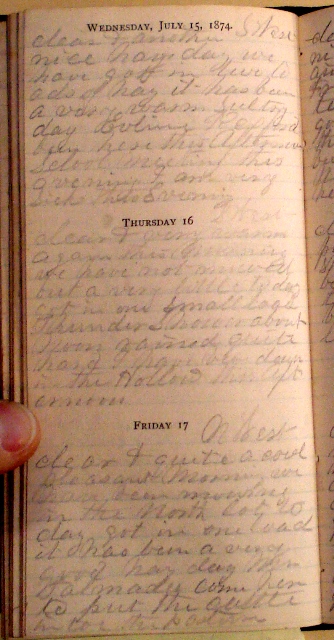 WEDNESDAY, JULY 15, 1874.
clear & another S West
nice hay day we
have got in twelve
ads of hay it has been
a very warm Sultry
day
been here this afternoon
School meeting this
evening I am very
this evening
THURSDAY 16
clear & very warm
again this morning
we have not mowed
but a very little to day
got in one Small load
Thunder Shower about
Noon rained quite
hard I have been down
in the Hollow this aft
ernoon
FRIDAY 17
N West
clear & quite a cool
pleasant Morning we
have been mowing
in the North lot to
day got in one load
it has been a very
good hay day Wm
Palmady come here
to put the
in for the